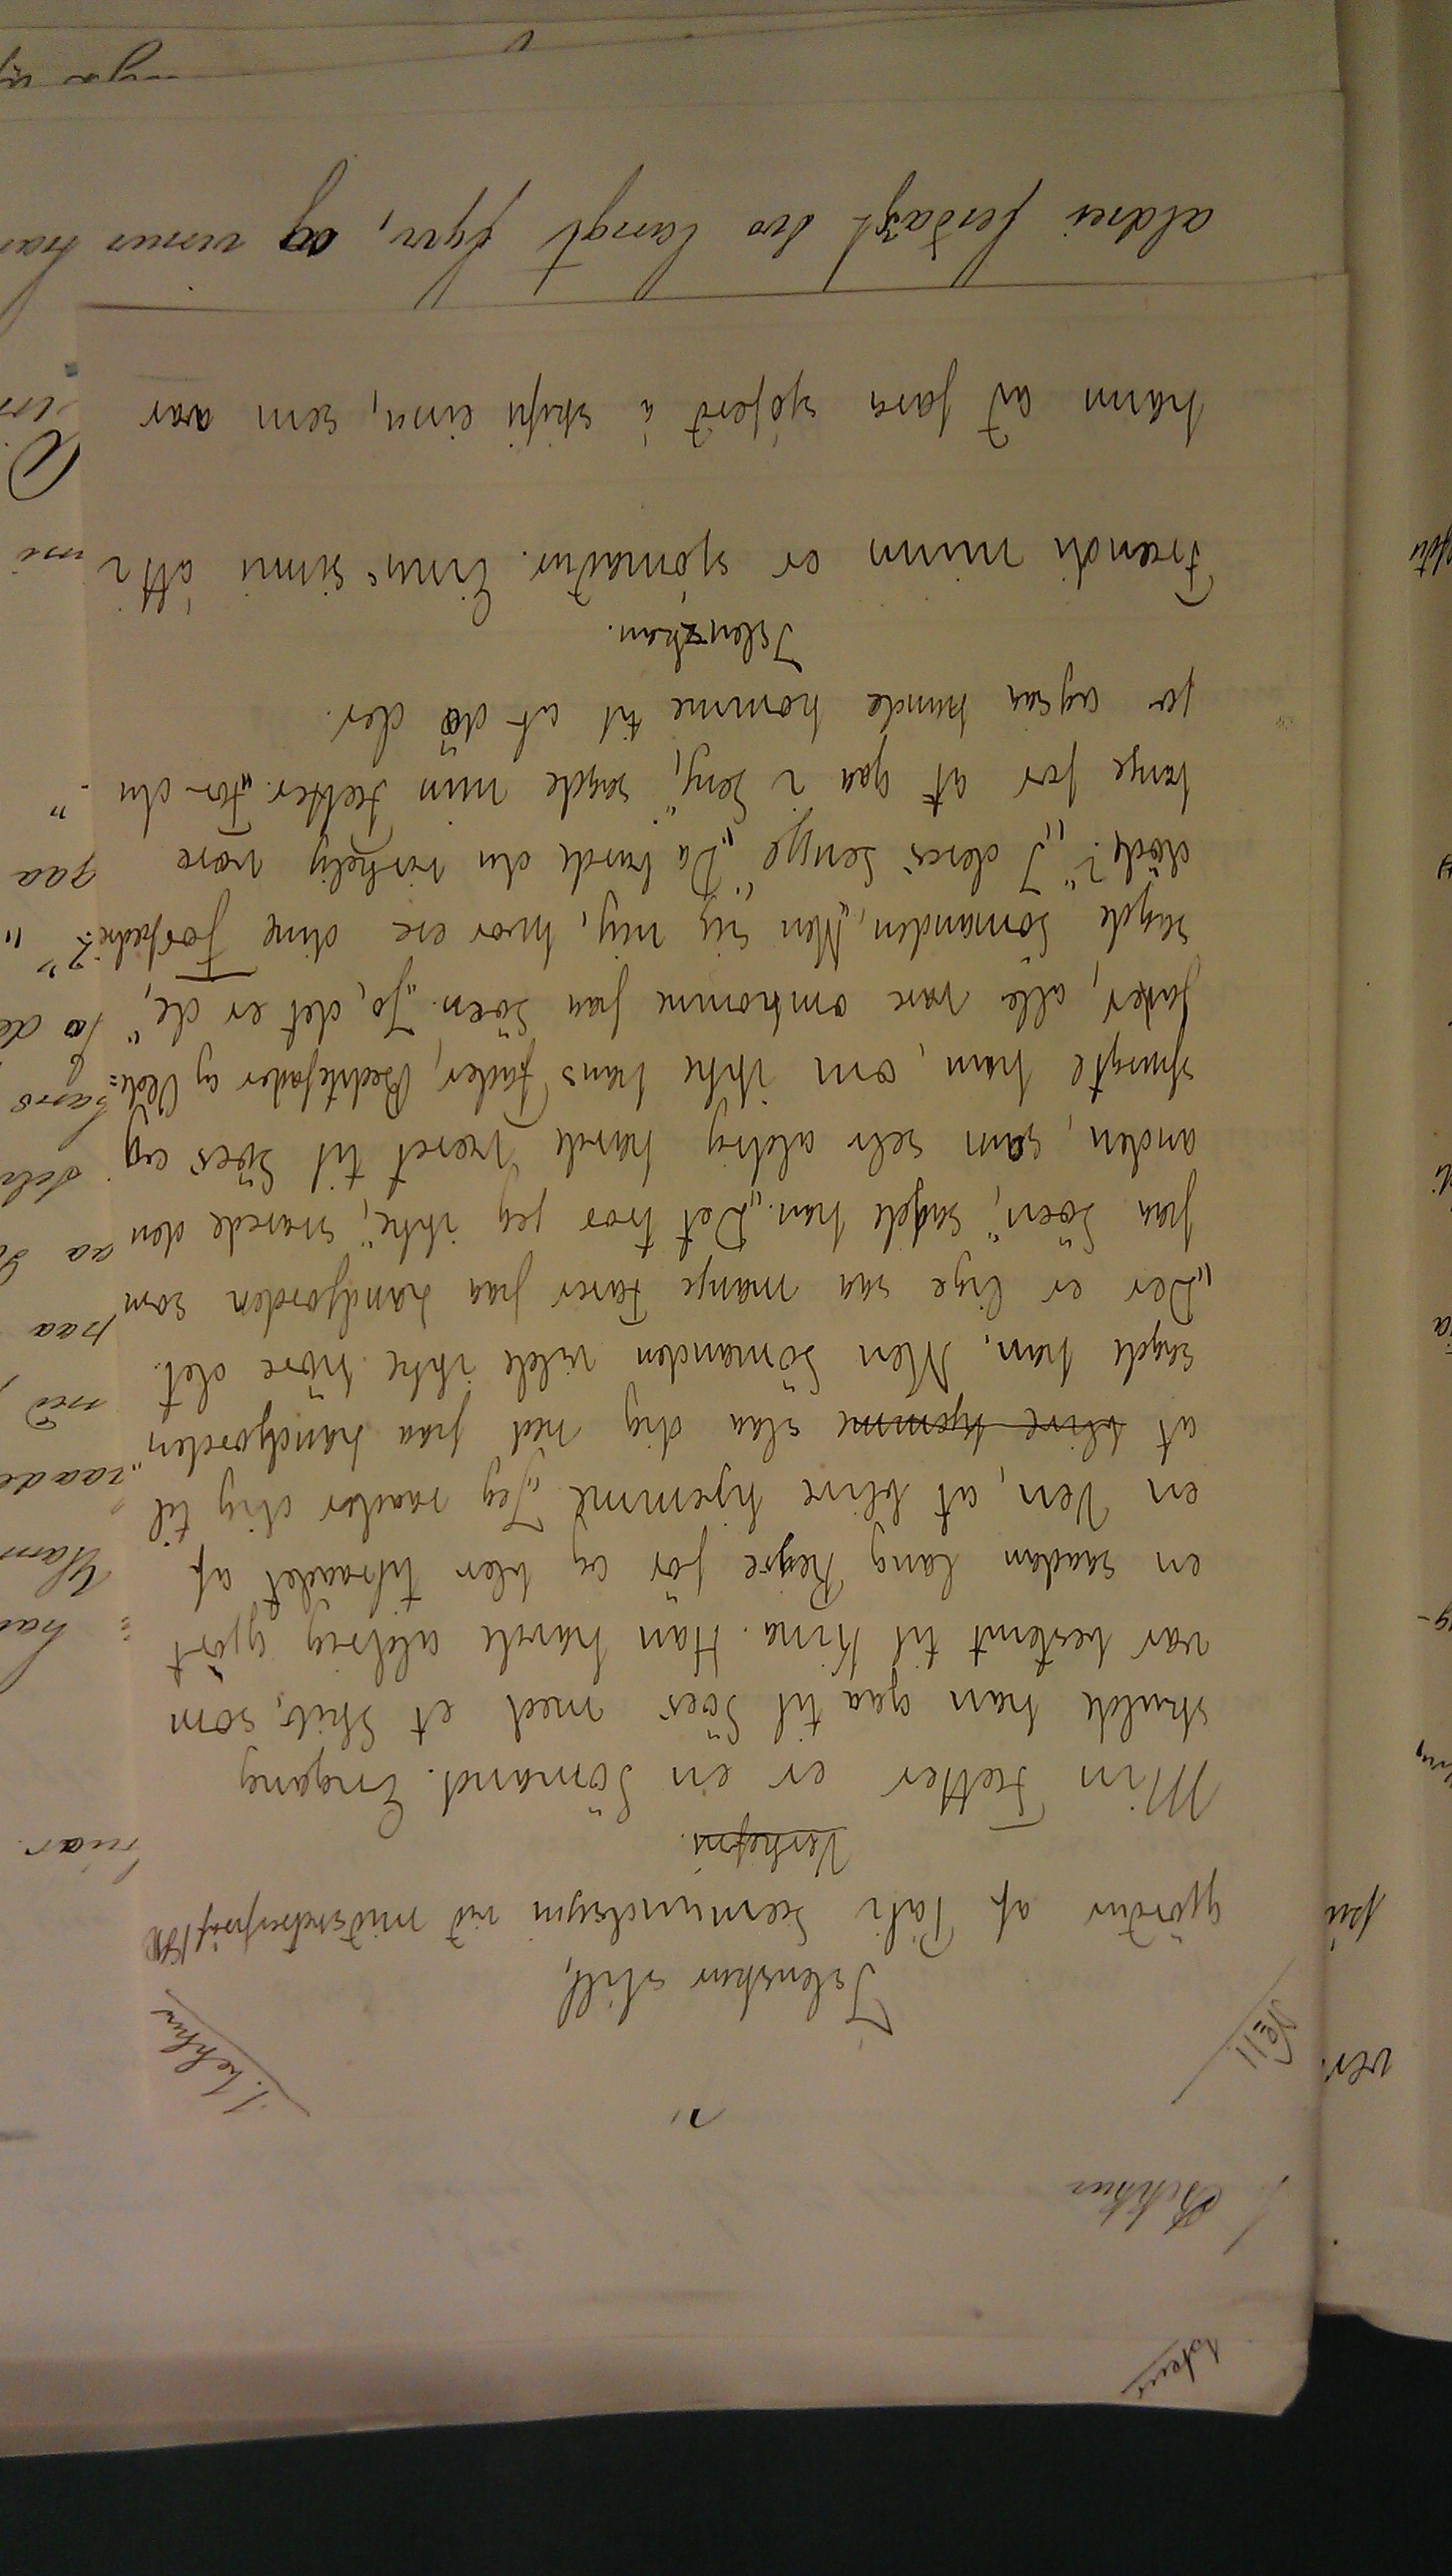 1. Bekkur
No 11.
1. bekkur
Íslenskur stíll,
gjörður af Páli Sæmundssyni við miðsvetrarpróf
Verkefni.
Min Fætter er en Sömand. Engang
skulde han gaa til Söes med et Skib, som
var bestemt til Kina. Han havde aldrig gjort
en saadan lang Rejse för og blev tilraadet af
en Ven, at blive hjemme. „Jeg raader dig til
at blive hjemme slaa dig ned paa Landjorden"
sagde han. Men Sömanden vilde ikke höre det.
„Der er lige saa mange Farer paa Landjorden som
paa Söen," sagde han. „Det tror jeg ikke," svarede den
anden, som selv aldrig havde været til Söes og
spurgte ham, om ikke hans Fader, Bedstefader og Olde=
fader, alle vare omkomne paa Söen. „Jo, det er de,"
sagde Sömanden, „Men sig mig, hvor ere dine Forfædre?"
döde?" „I deres Senge" „Da burde du virkelig være
bange for at gaa i Seng," sagde min Fætter. „For du
jo ogsaa kunde komme til at dö der.
Íslenzkan.
Frændi minn er sjómaður. Einu sinni átti
hann að fara sjóferð á skipi einu, sem var
aldrei ferðast svo langt fyrr, og vinur han